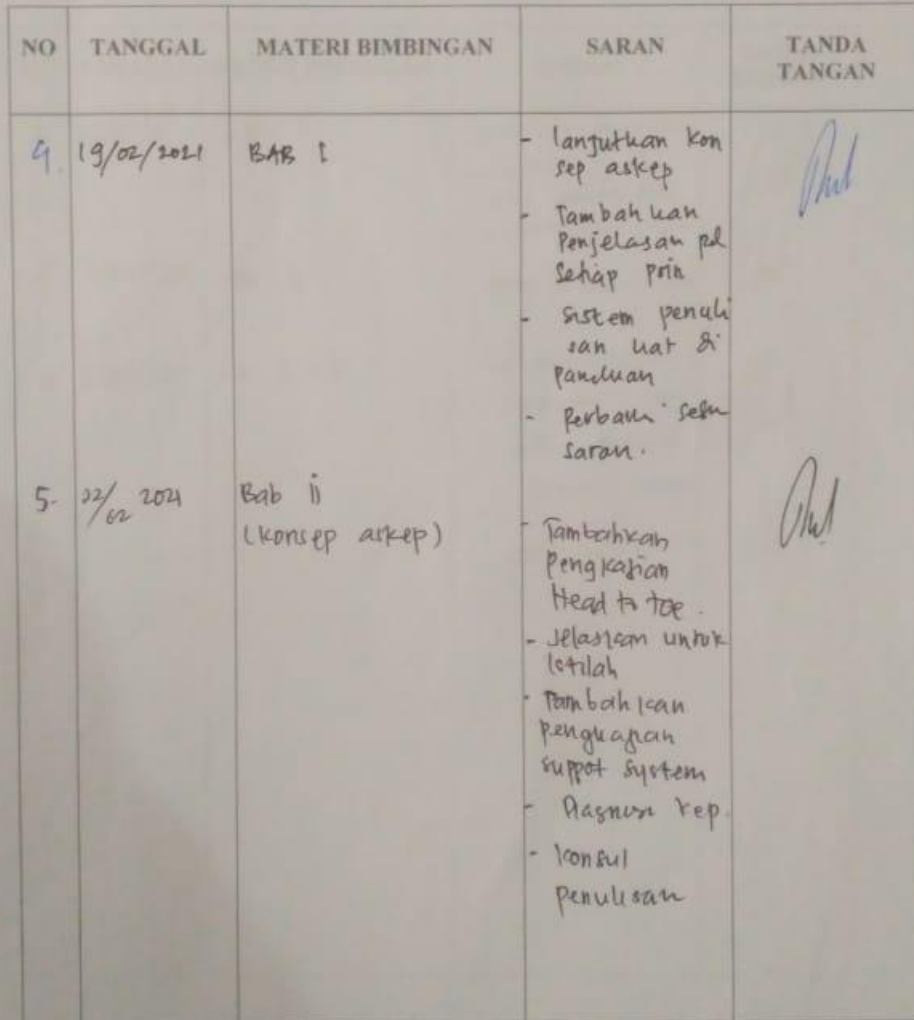 NO TANGGAL MATERI BIMBINGAN SARAN TANDA TANGAN
4. 19/02/2021 BAB I
- lanjutkan kon
sep askep
- Tambahkan
Penjelasan pd
setiap poin
- sistem penuli
san liat di
panduan
- Perbaiki sesu
saran.
5. 22/02 2021 Bab ii
(konsep askep)
- Tambahkan
Pengkajian
Head to toe.
- Jelaskan untuk
istilah
- Tambahkan
pengkajian
suppot system
- Diagnosa kep.
- konsul
penulisan